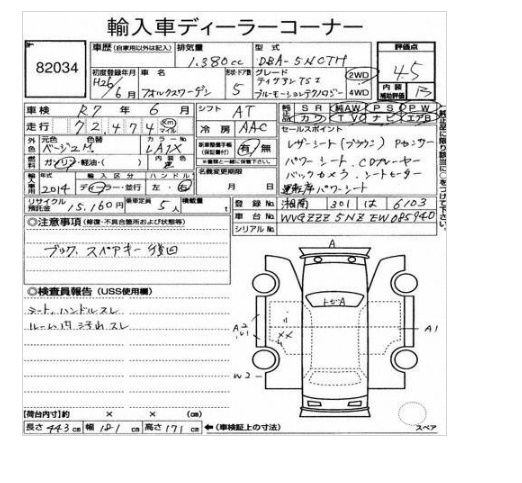 輸入車ディーラーコーナー
82034
車歴 (自家用以外は記入) 排気量 型式 評価点
1.380cc DBA-5NCTH 4.5
初度登録年月 車名 形状・ドア数 グレード 2WD
H26/6月 フォルクスワーゲン 5 ティグアン TSI ブルーモーションテクノロジー 4WD
内装補助評価 B
車検 R7年 6月 シフト AT SR 純AW PS PW
走行 72,474 Km マイル 冷房 AAC カワ TV ナビ エアB
外色 元色 色替 カラーNo. セールスポイント
ベージュM LA1X 有・無 レザーシート(ブラウン) Pセンサー
燃料 ガソリン・軽油・( ) 内装色 黒 パワーシート、CDプレーヤー
年式 輸入区分 ハンドル 名義変更期限 バックカメラ、シートヒーター
2014 ディーラー・並行 左・右 月 日 運転席パワーシート
リサイクル預託金 15,160円 乗車定員 5人 積載量 t 登録No. 湘南 301 は 6103
車台No. WVGZZZ5NZEW085940
◎注意事項 (修復・不具合箇所および状態等) シリアルNo.
ブック、スペアキー 後日
◎検査員報告 (USS使用欄)
シート、ハンドルスレ
ルーム内汚れスレ
A
トビA
A2
A1
W2
【荷台内寸】約 × × (cm)
長さ 443cm 幅 181cm 高さ 171cm ←(車検証上の寸法) スペア